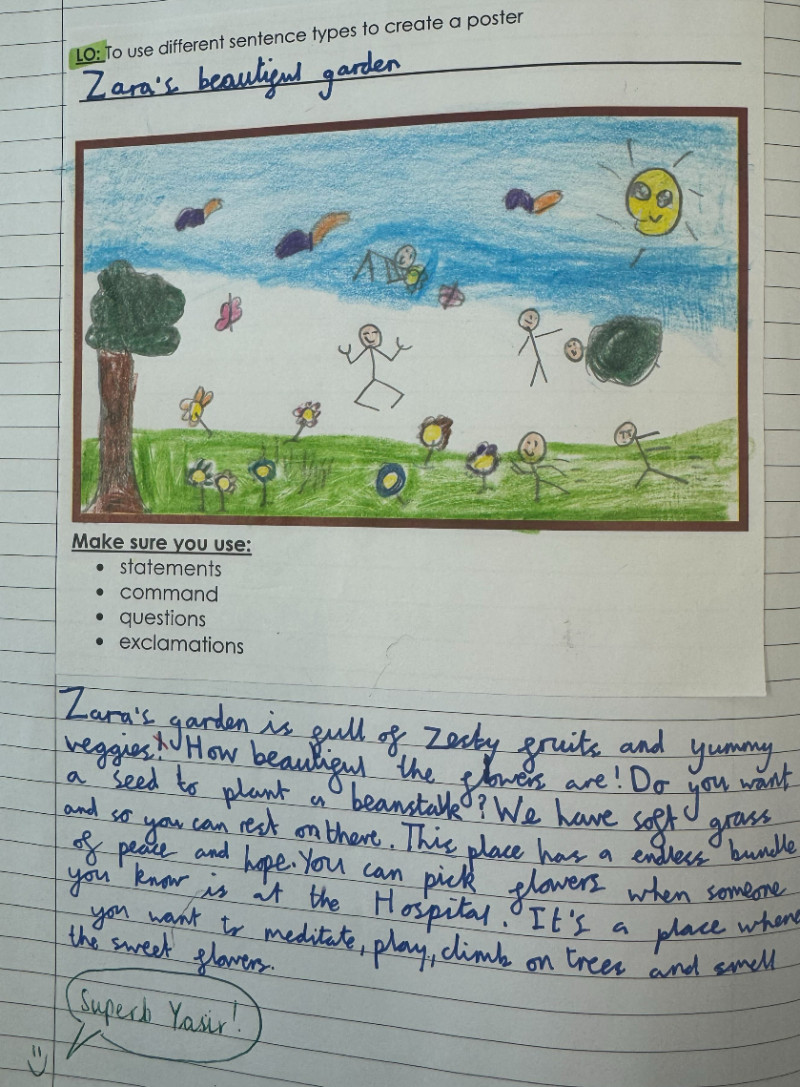 LO: To use different sentence types to create a poster
Zara's beautiful garden
Make sure you use:
• statements
• command
• questions
• exclamations
Zara's garden is full of zesty fruits and yummy
veggies! How beautiful the flowers are! Do you want
a seed to plant a beanstalk? We have soft grass
and so you can rest on there. This place has a endless bundle
of peace and hope. You can pick flowers when someone
you know is at the Hospital. It's a place where
you want to meditate, play, climb on trees and smell
the sweet flowers.
Superb Yasir!